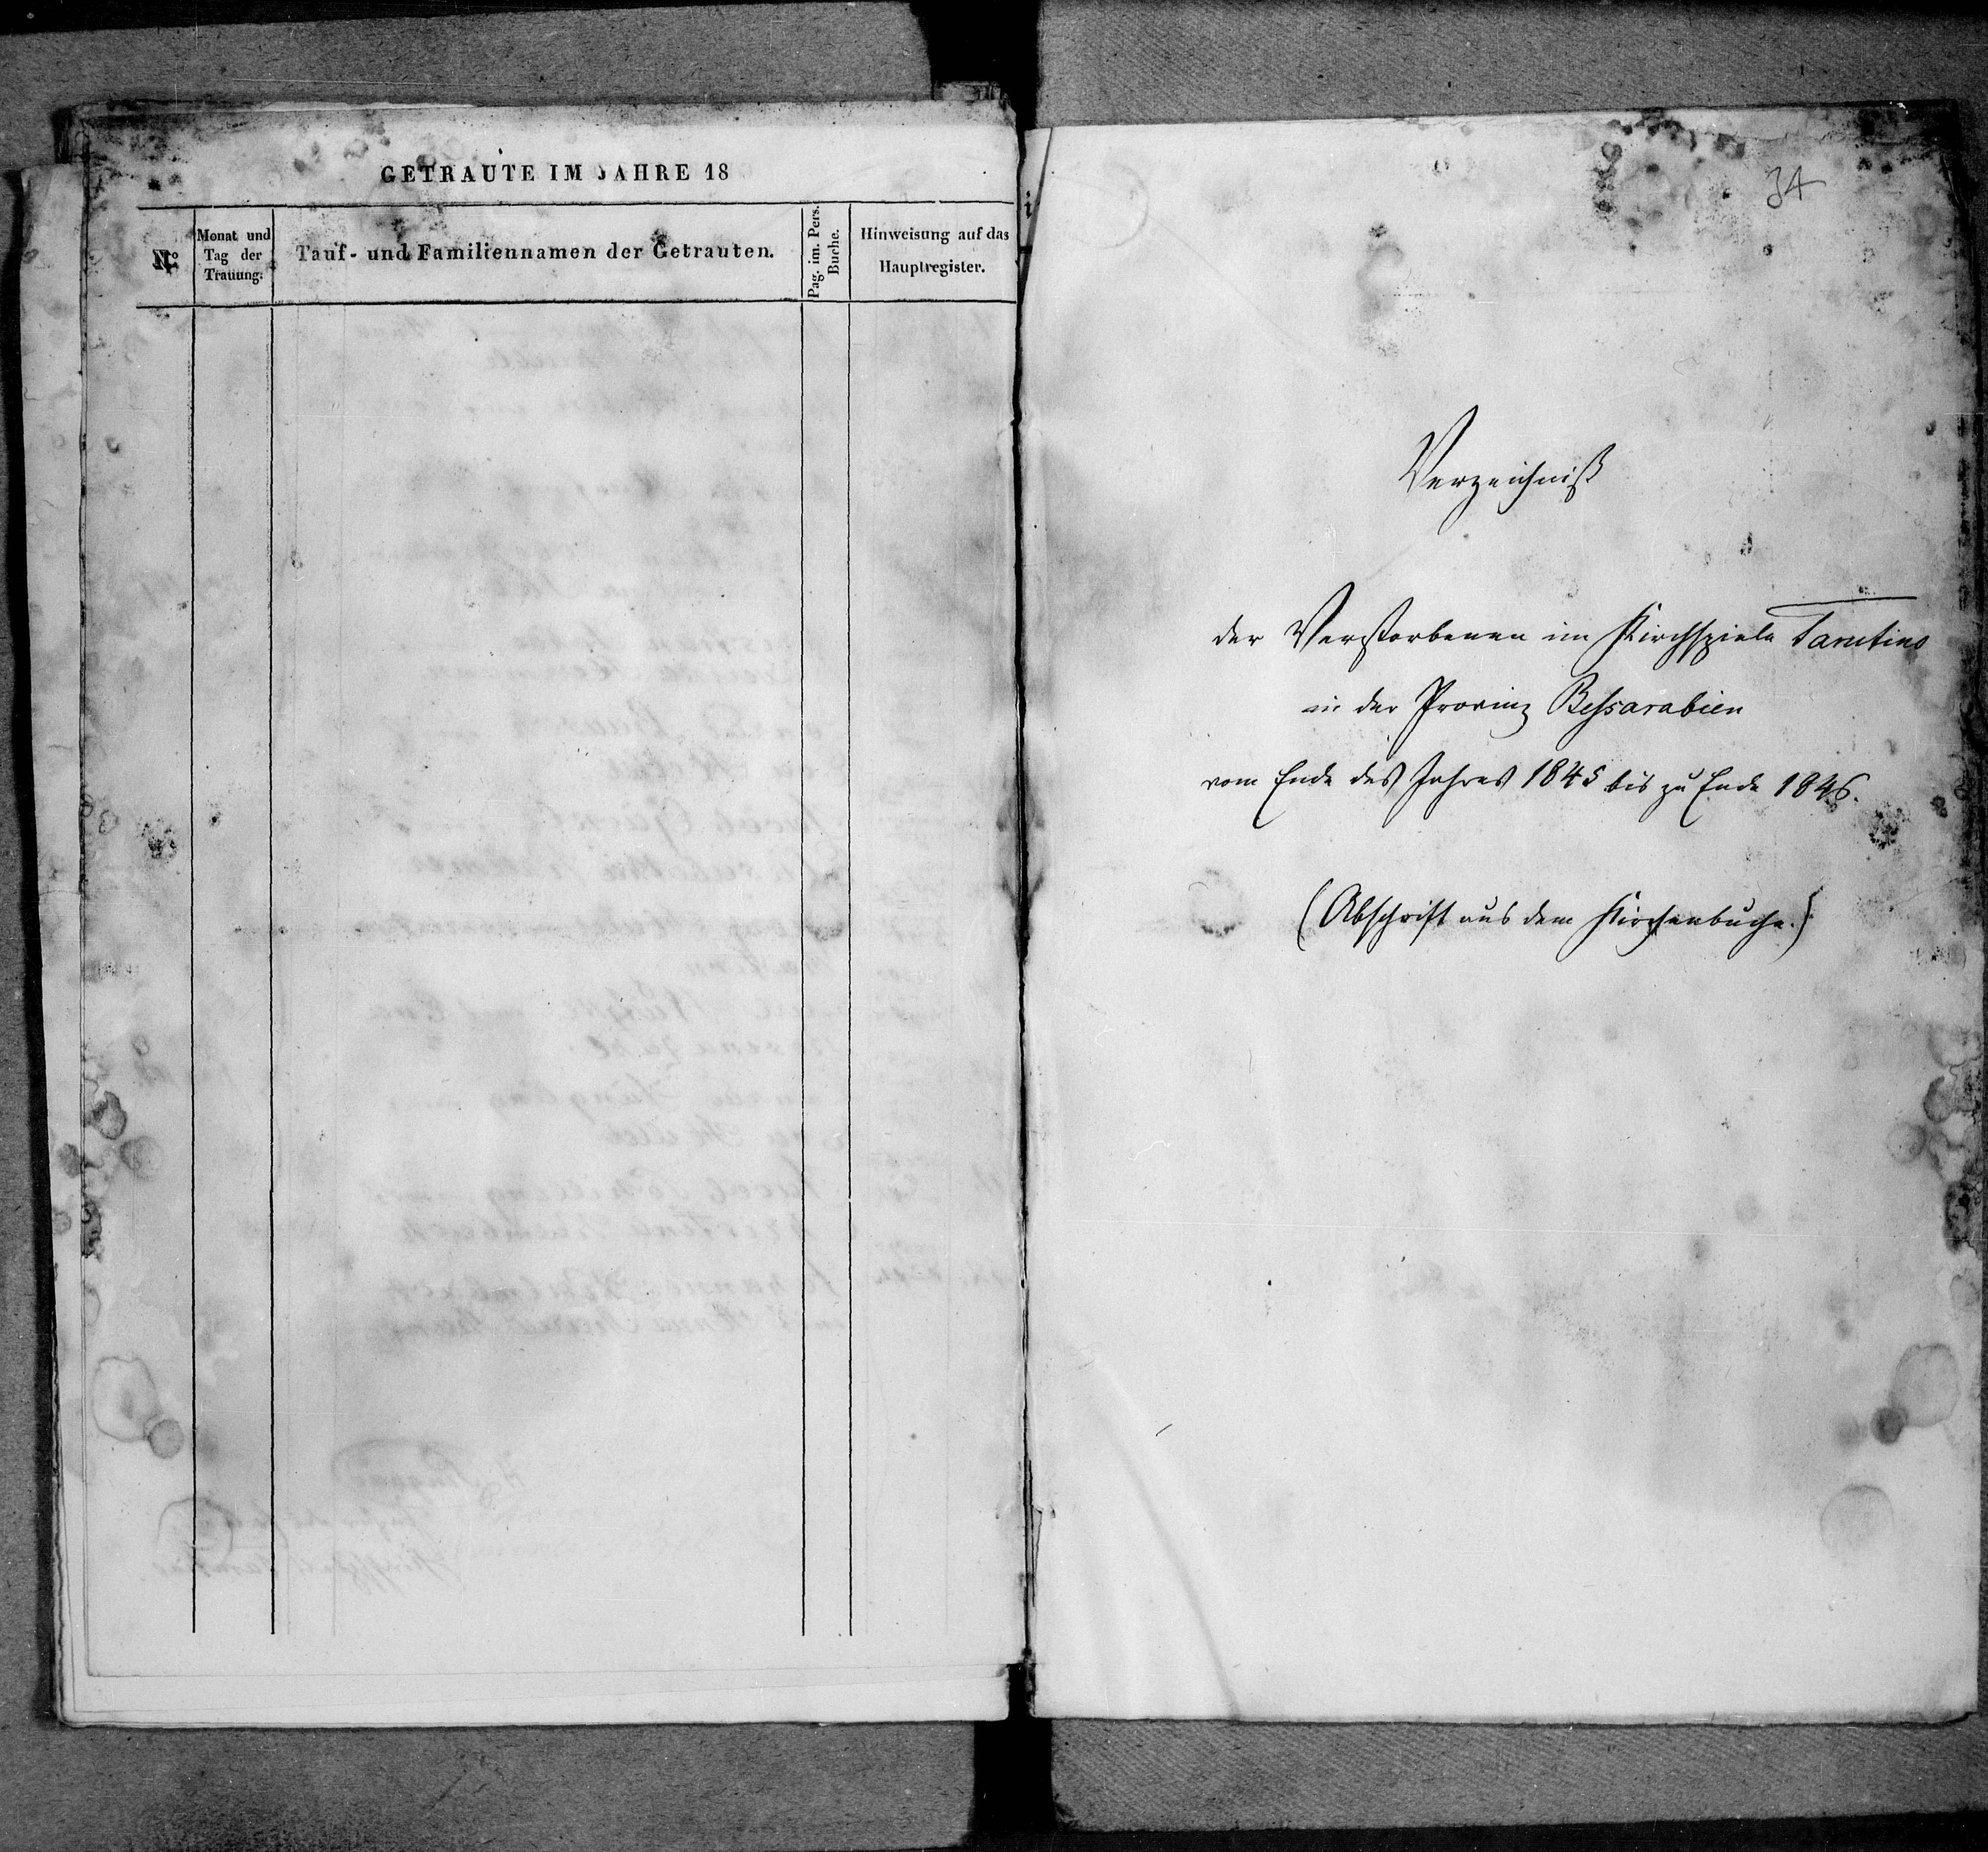 GETRAUTE IM JAHRE 18
N.º
Monat und
Tag der
Trauung.
Tauf- und Familiennamen der Getrauten.
Pag. im. Pers.
Buche.
Hinweisung auf das
Hauptregister.
34
Verzeichniß
der Verstorbenen im Kirchspiele Tarutino
in der Provinz Bessarabien
vom Ende des Jahres 1845 bis zu Ende 1846.
(Abschrift aus dem Kirchenbuche.)